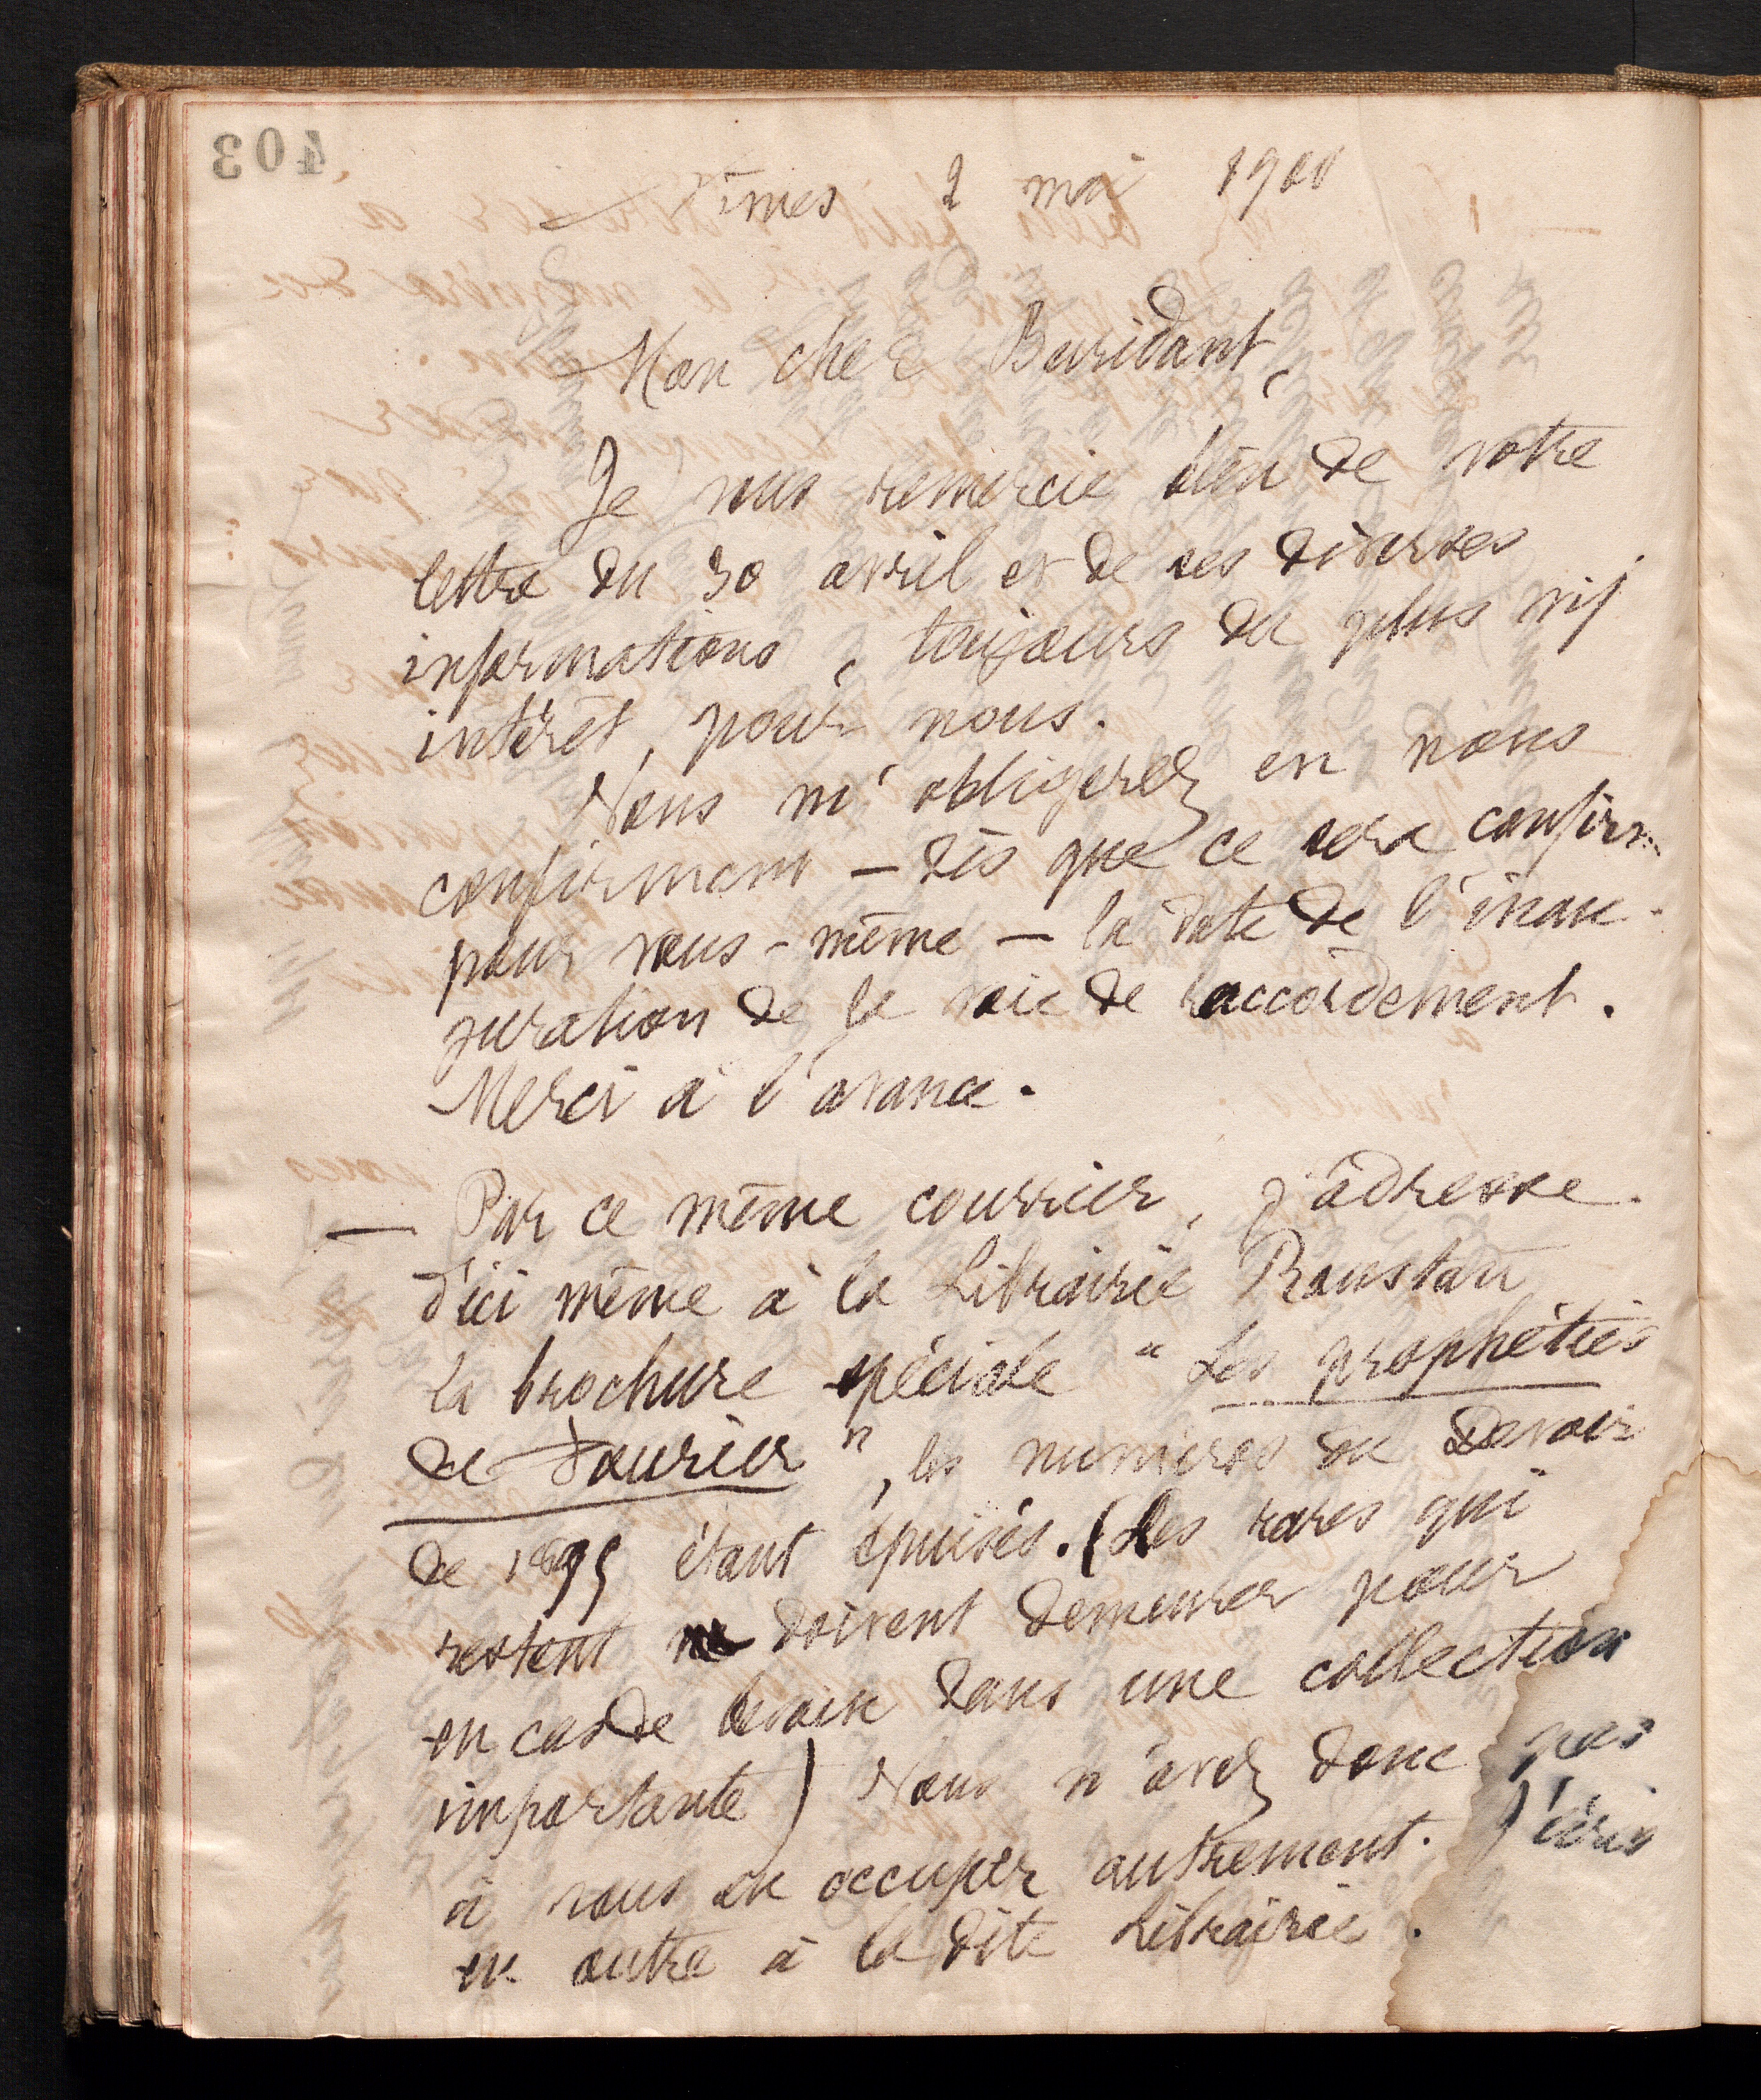 403
Nîmes 2 mai 1900
Mon cher Buridant,
Je vous remercie bien de votre
lettre du 30 avril et de ses diverses
informations, toujours du plus vif
intérêt, pour nous.
Vous m'obligerez en nous
confirmant – dès que ce sera confirm.
pour vous-même – la date de l'inau-
guration de la voie de raccordement.
Merci à l'avance.
– Par ce même courrier, j'adresse
d'ici même à la Librairie Roustan
la brochure spéciale "Les prophéties
de Fourier", les numéros du Devoir
de 1895 étant épuisés. (Les rares qui
restent doivent demeurer pour
en cas de besoin dans une collection
importante) Vous n'avez donc pas
à vous en occuper autrement. J'écris
en outre à la dite Librairie.